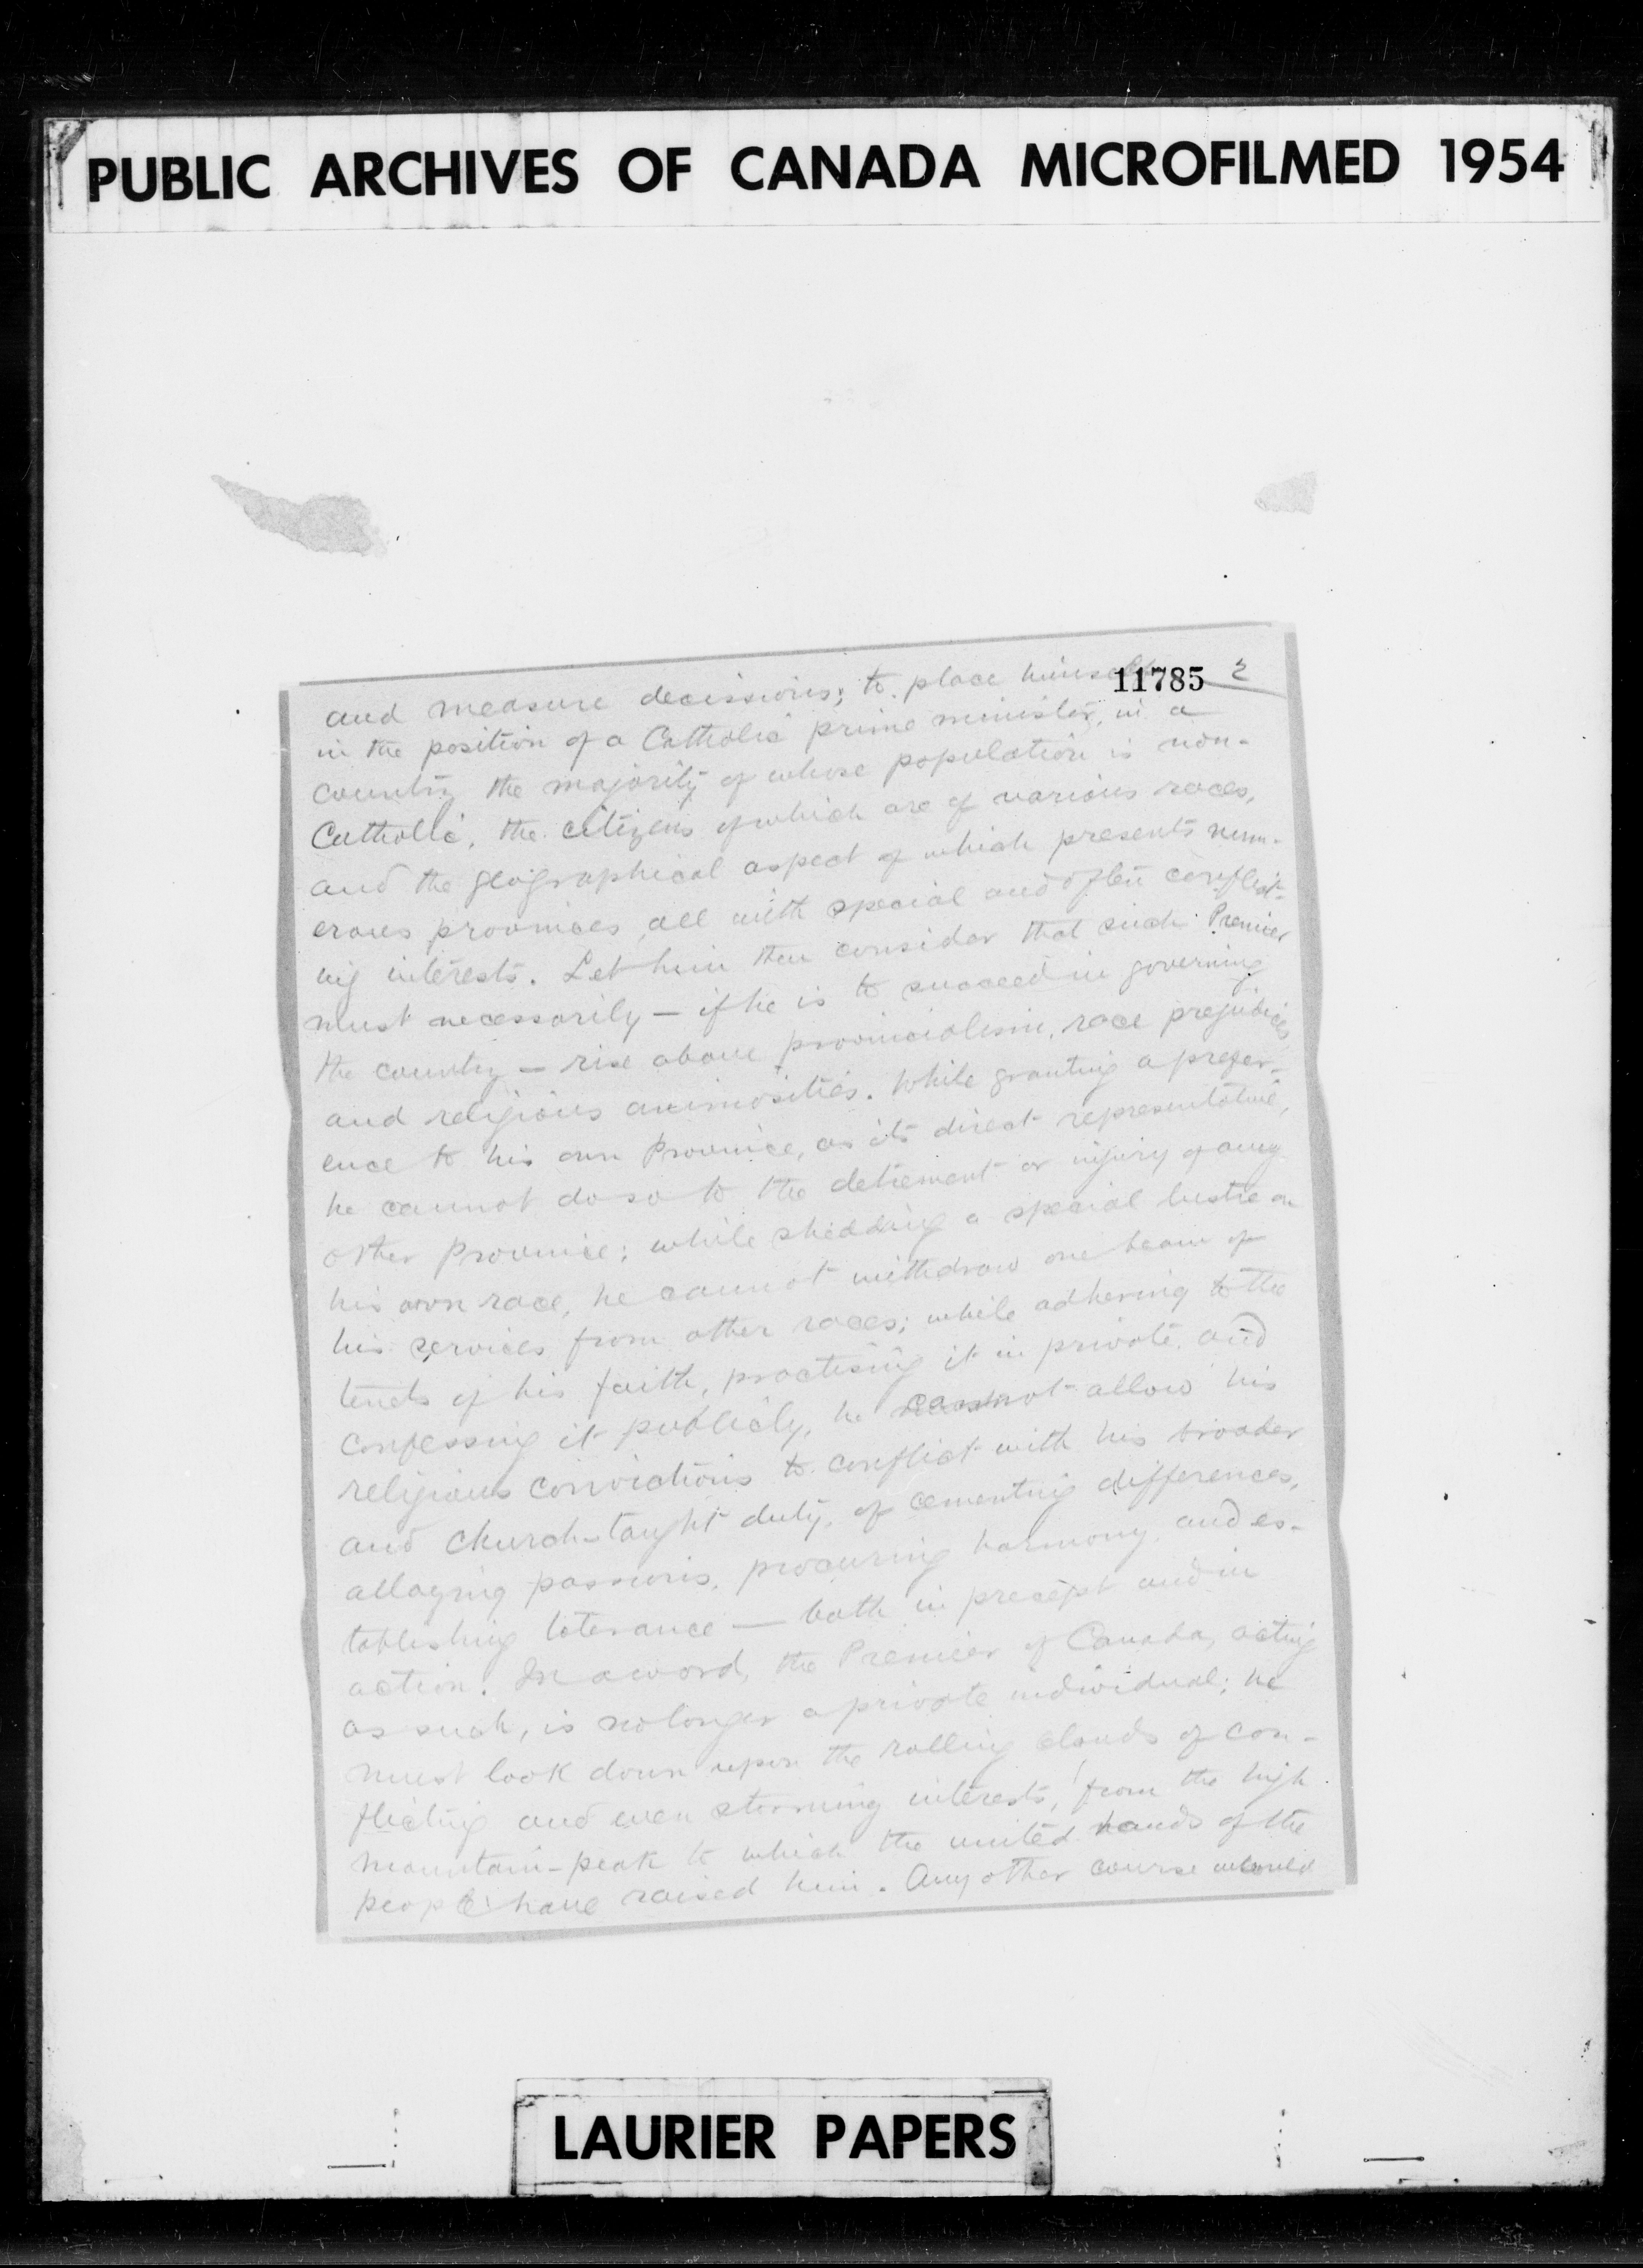 PUBLIC ARCHIVES OF CANADA MICROFILMED 1954
11785 2
and measure decissions; to place himself
in the position of a Catholic prime minister, in a
country the majority of whose population is non-
Catholic, the citizens of which are of various races,
and the geographical aspect of which presents num-
erous provinces, all with special and often conflict-
ing interests. Let him then consider that such Premier
must necessarily — if he is to succeed in governing
the country — rise above provincialism, race prejudices,
and religious animosities. While granting a prefer-
ence to his own Province, as its direct representative,
he cannot do so to the detriment or injury of any
other Province; while shedding a special lustre on
his own race, he cannot withdraw one beam of
his services from other races; while adhering to the
tenets of his faith, practising it in private, and
confessing it publicly, he cannot allow his
religious convictions to conflict with his broader
and church-taught duty, of cementing differences,
allaying passions, procuring harmony, and es-
tablishing tolerance — both in precept and in
action. In a word, the Premier of Canada, acting
as such, is no longer a private individual; he
must look down upon the rolling clouds of con-
flicting and even storming interests, from the high
mountain-peak to which the united hands of the
people have raised him. Any other course would
LAURIER PAPERS